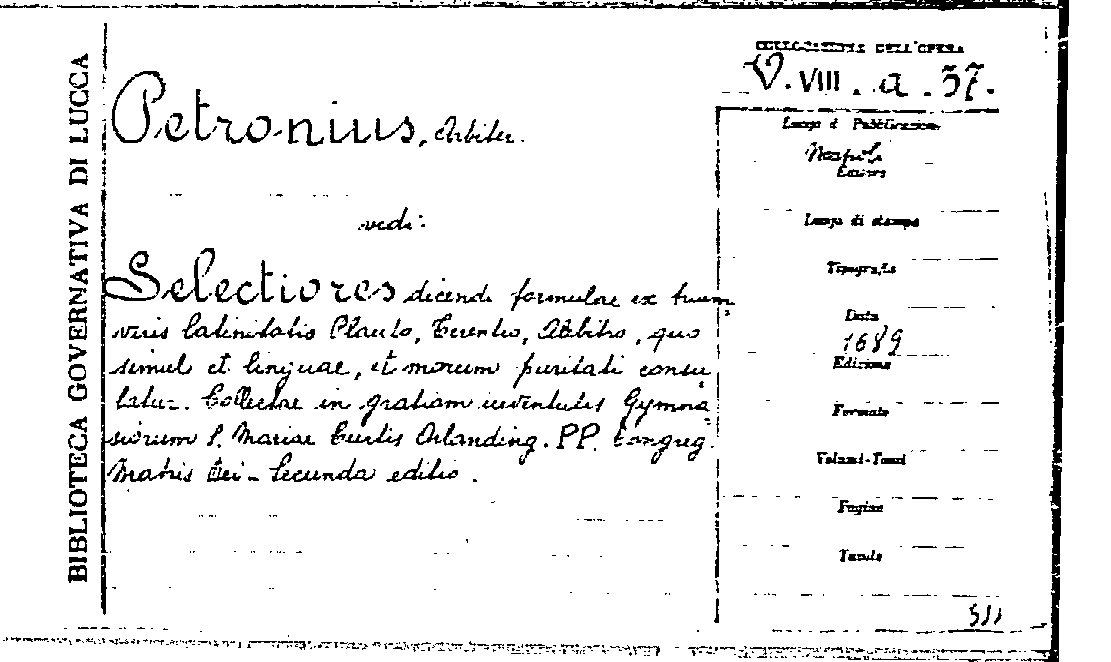 BIBLIOTECA GOVERNATIVA DI LUCCA
COLLOCAZIONE DELL'OPERA
V. VIII. a. 37.
Petronius, Arbiter.
vedi:
Selectiores dicendi formulae ex trium,
viris latinitatis Plauto, Terentio, Arbitro, quo
simul et linguae, et morum puritati consu
latur. Collectae in gratiam iuventutis Gymna
siorum S. Mariae Curtis Orlanding. PP. Congreg.
Matris Dei - Secunda editio.
Luogo di Pubblicazione
Napoli
Editore
Luogo di stampa
Tipografo
Data
1689
Edizione
Formato
Volumi-Tomi
Pagine
Tavole